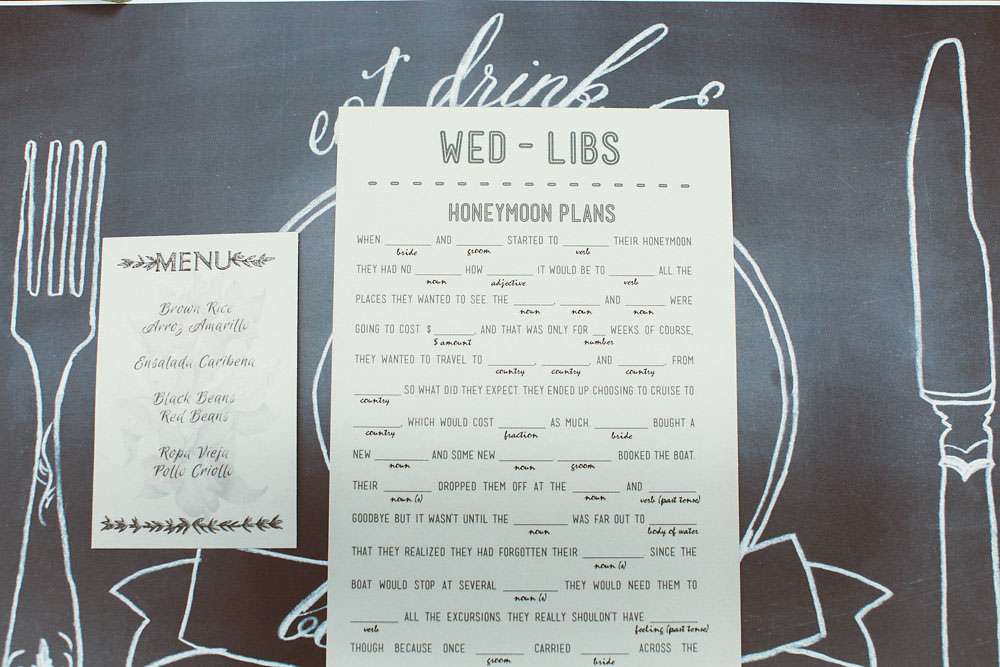 eat drink &
WED - LIBS
HONEYMOON PLANS
WHEN ________ AND ________ STARTED TO ________ THEIR HONEYMOON
bride groom verb
THEY HAD NO ________ HOW ________ IT WOULD BE TO ________ ALL THE
noun adjective verb
PLACES THEY WANTED TO SEE. THE ________, ________ AND ________ WERE
noun noun noun
GOING TO COST $________, AND THAT WAS ONLY FOR __ WEEKS OF COURSE,
$ amount number
THEY WANTED TO TRAVEL TO ________, ________, AND ________, FROM
country country country
________ SO WHAT DID THEY EXPECT. THEY ENDED UP CHOOSING TO CRUISE TO
country
________, WHICH WOULD COST ________ AS MUCH. ________ BOUGHT A
country fraction bride
NEW ________ AND SOME NEW ________. ________ BOOKED THE BOAT.
noun noun groom
THEIR ________ DROPPED THEM OFF AT THE ________ AND ________
noun (s) noun verb (past tense)
GOODBYE BUT IT WASN'T UNTIL THE ________ WAS FAR OUT TO ________
noun body of water
THAT THEY REALIZED THEY HAD FORGOTTEN THEIR ________. SINCE THE
noun (s)
BOAT WOULD STOP AT SEVERAL ________ THEY WOULD NEED THEM TO
noun (s)
________ ALL THE EXCURSIONS. THEY REALLY SHOULDN'T HAVE ________
verb feeling (past tense)
THOUGH BECAUSE ONCE ________ CARRIED ________ ACROSS THE
groom bride
MENU
Brown Rice
Arroz Amarillo
Ensalada Caribena
Black Beans
Red Beans
Ropa Vieja
Pollo Criollo